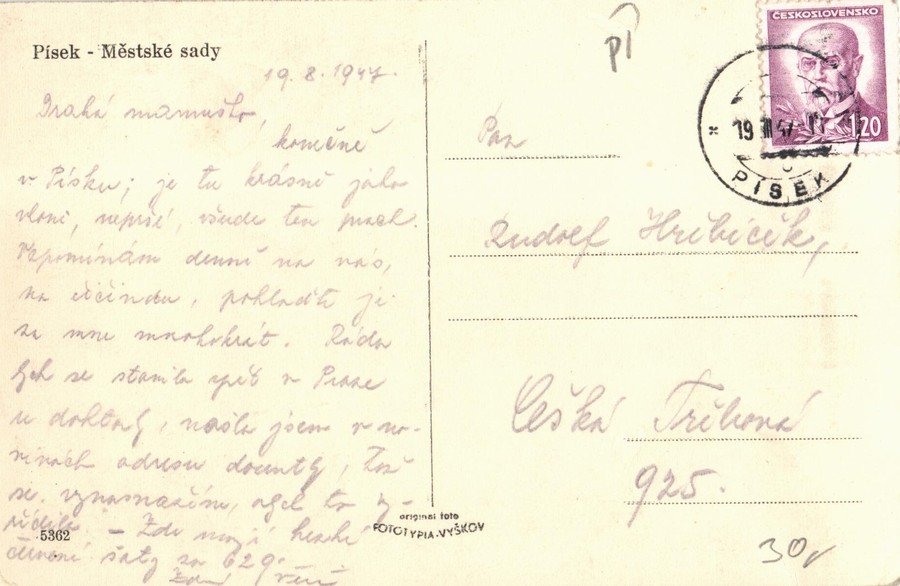 Písek - Městské sady
19.8.1947.
Drahá mamuško,
konečně
v Písku; je tu krásně jako
vloni, neprší, všude ten prach.
Vzpomínám denně na vás,
na, pohlaďte je
za mne mnohokrát. Ráda
bych se stavila zpět v Praze
u doktorky, našla jsem v no-
vinách adresu docentky, též
se vynasnažím, abych to vy-
řídila. - Zde mají hezké
červené šaty za 629.
Zdraví
5362
original foto
FOTOTYPIA-VYŠKOV
ČESKOSLOVENSKO
1.20
19 VIII 47
PÍSEK
Pan
Rudolf Hřebíček,
Česká Třebová
925.
30